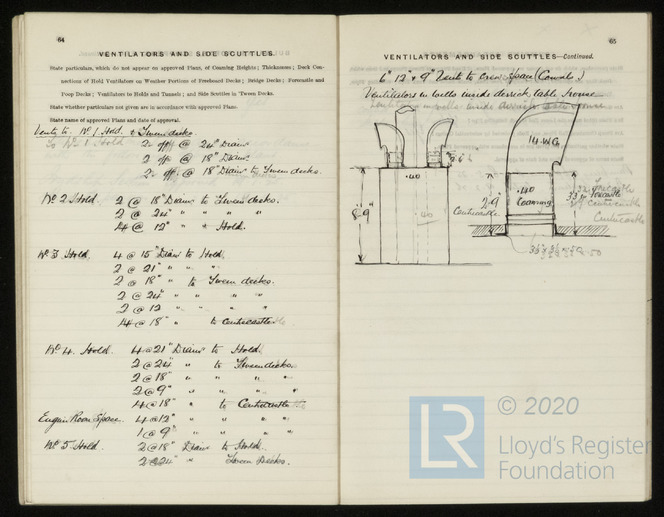 64
VENTILATORS AND SIDE SCUTTLES.
State particulars, which do not appear on approved Plans, of Coaming Heights; Thicknesses; Deck Con-
nections of Hold Ventilators on Weather Portions of Freeboard Decks; Bridge Decks; Forecastle and
Poop Decks; Ventilators to Holds and Tunnels; and Side Scuttles in Tween Decks.
State whether particulars not given are in accordance with approved Plans.
State name of approved Plans and date of approval.
Vents to. No 1 Hold. & Tween decks.
2 off @ 24" Diam
2 off @ 18" Diam
2 off @ 18" Diam to Tween decks.
No 2 Hold. 2 @ 18" Diam to Tween decks.
2 @ 24" " " " "
4 @ 12" " " Hold.
No 3 Hold. 4 @ 15" Diam to Hold.
2 @ 21" " " "
2 @ 18" " to Tween decks.
2 @ 24" " " "
2 @ 12 " " "
4 @ 18" " to Centrecastle
No 4. Hold. 4 @ 21" Diam to Hold.
2 @ 24" " to Tween decks.
2 @ 18" " " "
2 @ 9" " " "
4 @ 18" " to Centrecastle
Engine Room Space. 4 @ 12" " " "
1 @ 9" " " "
No 5 Hold. 2 @ 18" Diam to Hold.
2 @ 24" " Tween Decks.
65
VENTILATORS AND SIDE SCUTTLES—Continued.
6" 12" & 9" Vents to Crew Space (Cowls.)
Ventilators on wells inside derrick table house
14 W.G.
.40
8'-9"
2'-9"
Centrecastle.
.40
Coaming
33"
Forecastle
Centrecastle
© 2020
LR
Lloyd's Register
Foundation